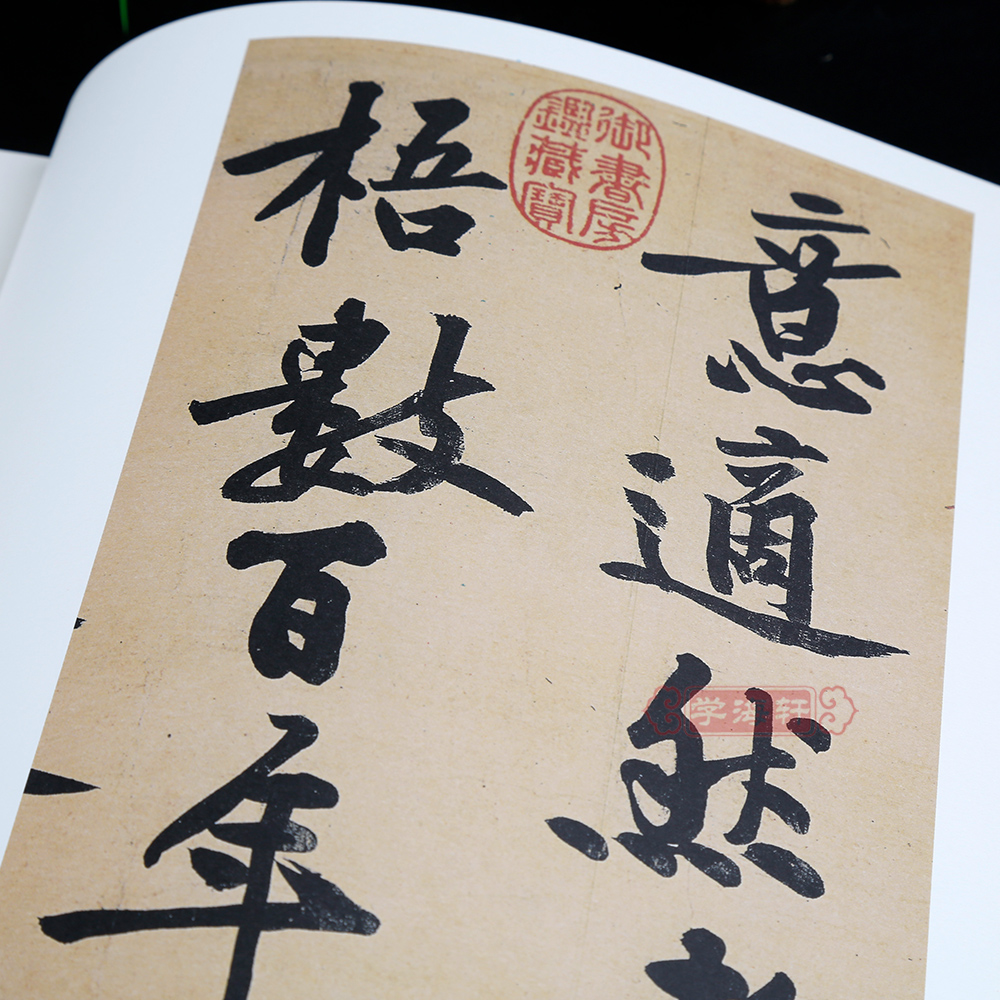 意適然
御書房
鑑藏寶
梧數百年
学海轩